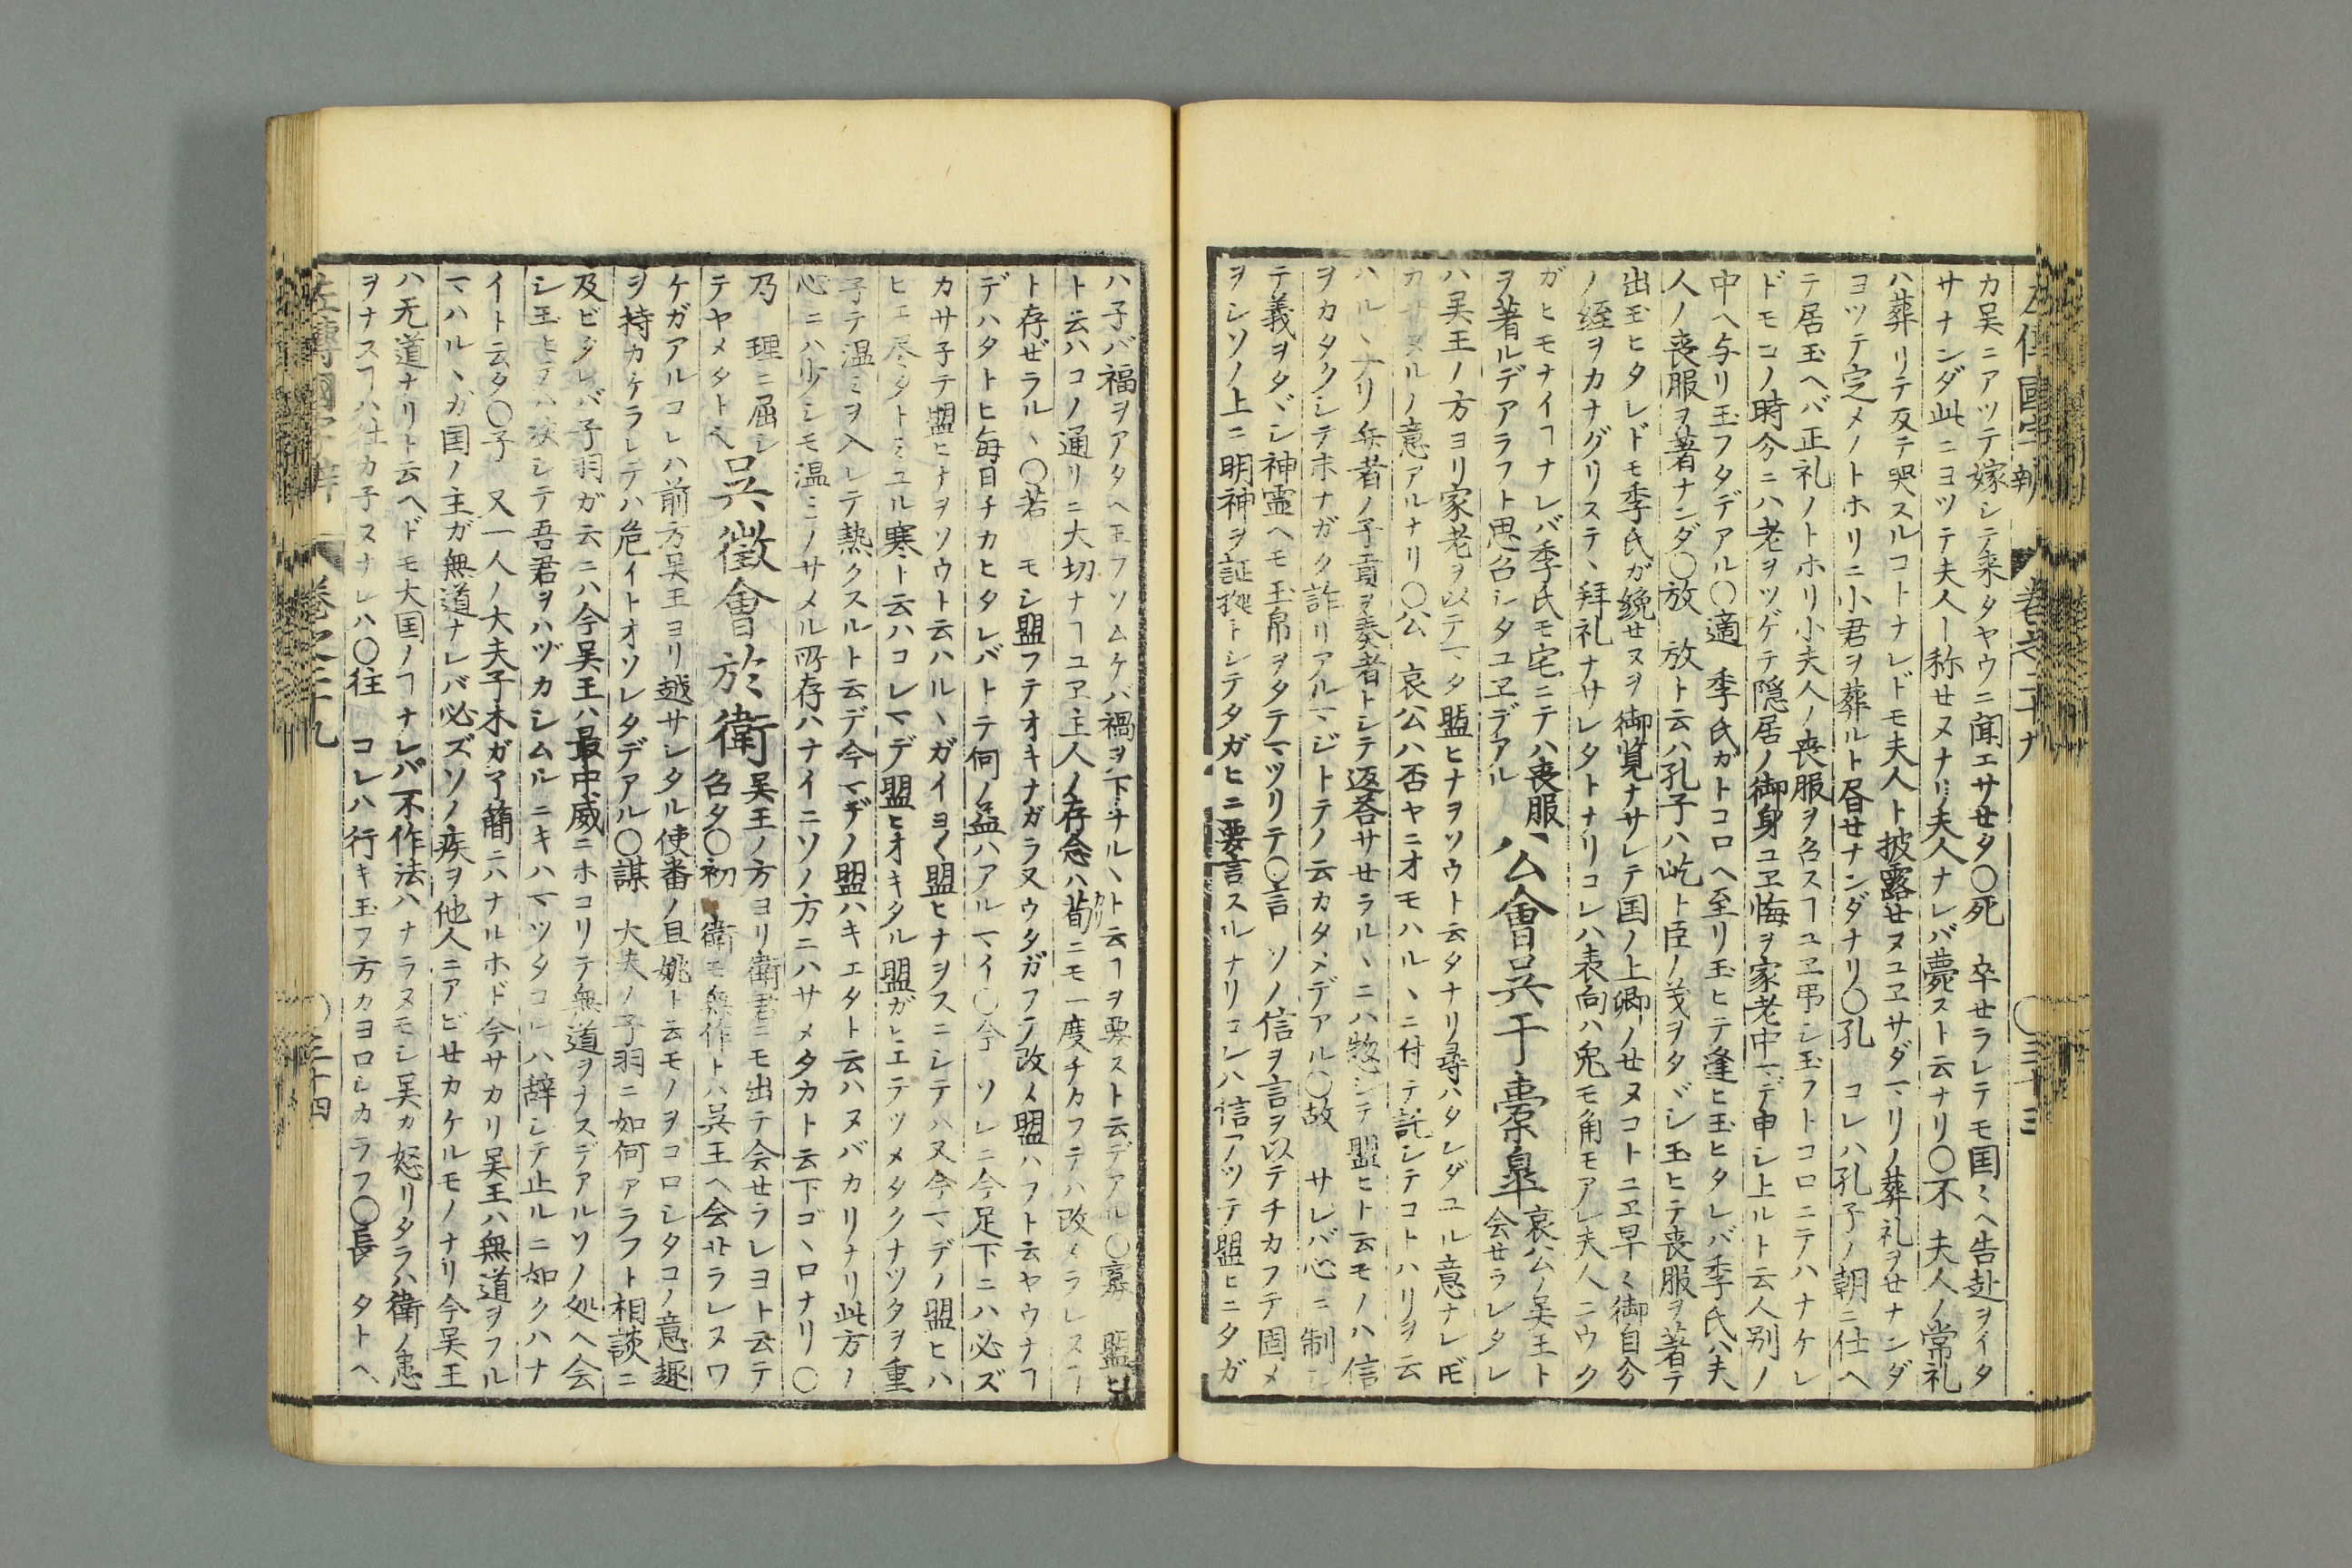 左傳國字辯 卷之二十九 〇三十三
カ呉ニアツテ嫁シテ来タヤウニ聞エサセタ〇死 卒せラレテモ国〻ヘ告赴ヲイタ
サナンダ此ニヨツテ夫人ト称せヌナリ夫人ナレバ薨スト云ナリ〇不 夫人ノ常礼
ハ葬リテ反テ哭スルコトナレドモ夫人ト披露せヌユヱサダマリノ葬礼ヲせナンダ
ヨツテ定メノトホリニ小君ヲ葬ルト昏せナンダナリ〇孔 コレハ孔子ノ朝ニ仕ヘ
テ居玉ヘバ正礼ノトホリ小夫人ノ喪服ヲ名スヿユヱ弔シ玉フトコロニテハナケレ
ドモコノ時今ニハ老ヲツゲテ隠居ノ御身ユヱ悔ヲ家老中マデ申シ上ルト云人別ノ
中ヘ与リ玉フタデアル〇適 季氏カトコロヘ至リ玉ヒテ逢ヒ玉ヒタレバ季氏ハ夫
人ノ喪服ヲ著ナンダ〇放 放ト云ハ孔子ハ屹ト臣ノ義ヲタヾシ玉ヒテ喪服ヲ著テ
出玉ヒタレドモ季氏ガ絻せヌヲ御覧ナサレテ国ノ上卿ノせヌコトユヱ早〻御自分
ノ絰ヲカナグリステヽ拜礼ナサレタトナリコレハ表向ハ兎モ角モアレ夫人ニウク
ガヒモナイヿナレバ季氏モ宅ニテハ喪服ヲ著ルデアラフト思召シタユヱデアル
公會呉于橐皐 哀公ノ呉王ト会せラレタレ
ハ呉王ノ方ヨリ家老ヲ以テマタ盟ヒナヲソウト云タナリ尋ハタレダユル意ナレ𪜈
カサヌルノ意アルナリ〇公 哀公ハ否ヤニオモハルヽニ付テ託シテコトハリヲ云
ハルヽナリ使者ノ子貢ヲ奏者トシテ返荅サせラルヽニハ惣シテ盟ヒト云モノハ信
ヲカタクシテ末ナガク詐リアルマジトテノ云カタメデアル〇故 サレバ心ニ制シ
テ義ヲタヾシ神霊ヘモ玉帛ヲタテマツリテ〇言 ソノ信ヲ言ヲ以テチカフテ固メ
ヲシソノ上ニ明神ヲ証拠トシテタガヒニ要言スルナリコレハ信アツテ盟ヒニタガ
ハ子バ福ヲアタヘ玉フソムケバ禍ヲ下サルヽト云ヿヲ要スト云デアル〇寡 盟
ト云ハコノ通リニ大切ナヿユヱ主人ノ存念ハ苟ニモ一度チカフテハ改メラレヌヿ
ト存ぜラルヽ〇若 モシ盟フテオキナガラ又ウタガフテ改メ盟ハフト云ヤウナヿ
デハタトヒ毎日チカヒタレバトテ何ノ益ハアルマイ〇今 ソレニ今足下ニハ必ズ
カサ子テ盟ヒナヲソウト云ハルヽガイヨ〱盟ヒナヲスニシテハ又今マデノ盟ヒハ
ヒエ尽タトミユル寒ト云ハコレマデ盟ヒオキタル盟ガヒエテツメタクナツタヲ重
子テ温ミヲ入レテ熱クスルト云デ今マデノ盟ハキエタト云ハヌバカリナリ此方ノ
心ニハ少シモ温ミノサメル所存ハナイニソノ方ニハサメタカト云下ゴヽロナリ〇
乃 理ニ屈シテヤメタトヘ
呉徵會於衛 呉王ノ方ヨリ衛君ニモ出テ会せラレヨト云テ召タ〇初 衛モ無作トハ呉王ヘ会せラレヌワ
ケガアルコレハ前方呉王ヨリ越サレタル使番ノ且姚ト云モノヲコロシタコノ意趣
ヲ持カケラレテハ危イトオソレタデアル〇謀 大夫ノ子羽ニ如何アラフト相談ニ
及ビタレバ子羽ガ云ニハ今呉王ハ最中威ニホコリテ無道ヲヲスデアルソノ処ヘ会
シ玉ヒテハ決シテ吾君ヲハヅカシムルニキハマツタコレハ辞シテ止ルニ如クハナ
イト云タ〇子 又一人ノ大夫子木ガ了簡ニハナルホド今サカリ呉王ハ無道ヲフル
マハルヽガ国ノ主ガ無道ナレバ必ズソノ疾ヲ他人ニアビせカケルモノナリ今呉王
ハ无道ナリト云ヘドモ大国ノヿナレバ不作法ハナラヌモシ呉カ怒リタラハ衛ノ患
ヲナスヿハ仕カ子スナレハ〇往 コレハ行キ玉フ方カヨロシカラフ〇長 タトヘ
左傳國字辯 卷之二十九 〇三十四